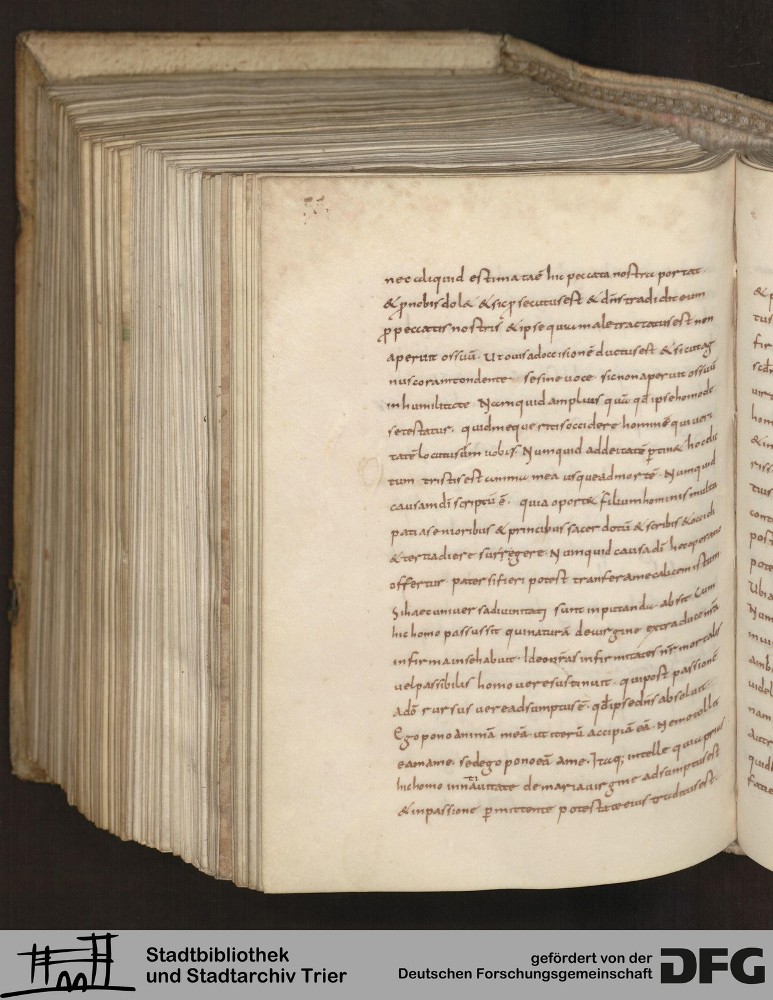 nec aliquid estimatać hic peccata nostra portat
& ꝓnobis dol& & sic ꝑsecutus est & dn̄s tradidit eum
ꝓpeccatis nostris & ipse quia male tractatus est non
aperuit os suū. Ut ouis ad occisionē ductus est & sicut ag
nus coram tondente se sine uoce sic non aperuit os suū
in humilitate Numquid amplius quā qd̄ ipse homo de
se testatur. quid me queritis occidere hominē qui ueri
tatē locutus sum uobis. Numquid ad deitatē ꝑtin& hoc dic
tum tristis est anima mea usque ad mortē. Numquid
causam di scriptū ē. quia oport& filium hominis multa
pati a senioribus & principibus sacerdotū & scribis & occidi
& tertia die resurgere. Numquid causa dī hoc operatio
offertur pater si fieri potest transfer a me calicem istum
Si haec uniuersa diuinitati sunt inputanda. absit. Cum
hic homo passus sit qui naturā de uirgine extraducē nr̄a
infirma in se habuit. Ideo nr̄as infirmitates nr̄ mortalis
uel passibilis homo uere sustinuit. qui post passionē
a dō rursus uere adsumptus ē. qd̄ ipse dn̄s absoluit.
Ego pono animā meā ut iterū accipiā eā. Nemo tollet
eam a me. sed ego pono eā a me. Itaq; intellege quia prius
hic homo in natiuitate de maria uirgine adsumptus est
& in passione ꝑmittente potestate eius traditus est.
Stadtbibliothek
und Stadtarchiv Trier
gefördert von der
Deutschen Forschungsgemeinschaft
DFG